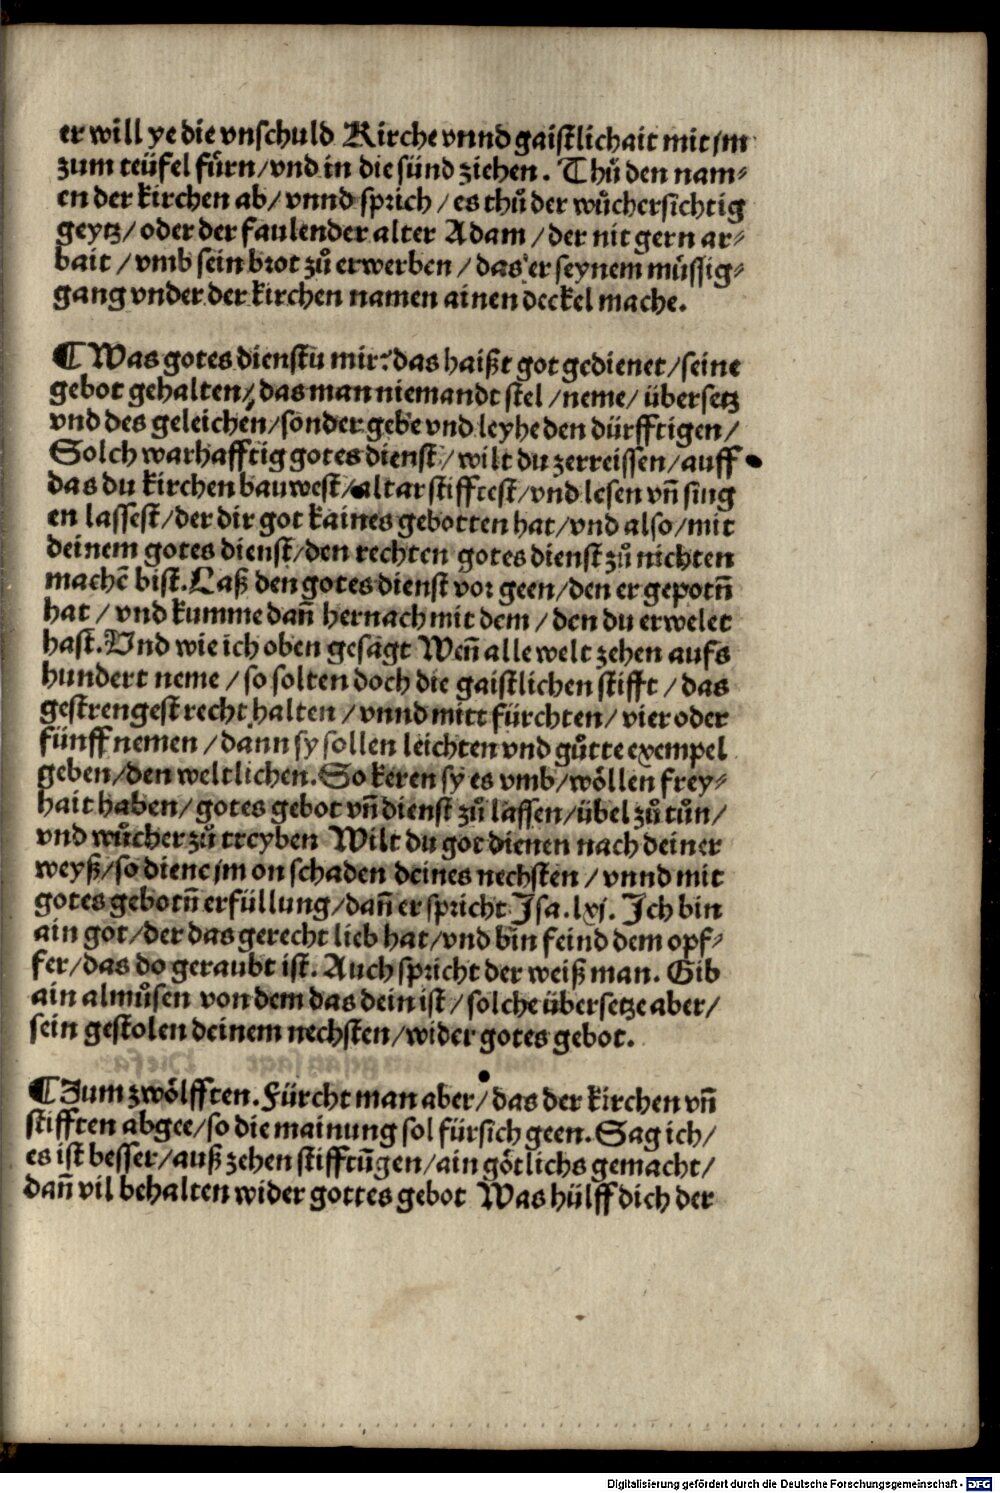 er will ye die vnschuld Kirche vnnd gaistlichait mit jm
zum teüfel fürn/vnd in die sünd ziehen. Thuͦ den nam⸗
en der kirchen ab/ vnnd sprich / es thuͦ der wuͦchersichtig
geytz/ oder der faulender alter Adam / der nit gern ar⸗
bait / vmb sein brot zuͦ erwerben / das er seynem müssig⸗
gang vnder der kirchen namen ainen deckel mache.
¶ Was gotes dienstu mir? das haißt got gedienet/seine
gebot gehalten/ das man niemandt stel /neme/ übersetz
vnd des geleichen/sonder gebe vnd leyhe den dürfftigen/
Solch warhafftig gotes dienst/ wilt du zerreissen/auff
das du kirchen bauwest/altar stifftest/vnd lesen vñ sing
en lassest/der dir got kaines gebotten hat/vnd also/mit
deinem gotes dienst/den rechten gotes dienst zuͦ nichten
machẽ bist. Laß den gotes dienst vor geen/den er gepotñ
hat / vnd kumme dañ hernach mit dem / den du erwelet
hast. Vnd wie ich oben gesagt Weñ alle welt zehen aufs
hundert neme / so solten doch die gaistlichen stifft / das
gestrengest recht halten / vnnd mitt fürchten/ vier oder
fünff nemen /dann sy sollen leichten vnd guͦtte exempel
geben/den weltlichen. So keren sy es vmb/wöllen frey⸗
hait haben/ gotes gebot vñ dienst zuͦ lassen/übel zuͦ tuͦn/
vnd wuͦcher zuͦ treyben Wilt du got dienen nach deiner
weyß/so diene jm on schaden deines nechsten / vnnd mit
gotes gebotñ erfüllung/dañ er spricht Jsa.lxj. Jch bin
ain got/der das gerecht lieb hat/vnd bin feind dem opf⸗
fer/das do geraubt ist. Auch spricht der weiß man. Gib
ain almuͦsen von dem das dein ist / solche übersetze aber/
sein gestolen deinem nechsten/wider gotes gebot.
¶ Zum zwölfften. Fürcht man aber/das der kirchen vñ
stifften abgee/so die mainung sol fürsich geen. Sag ich/
es ist besser/auß zehen stifftũgen/ain götlichs gemacht/
dañ vil behalten wider gottes gebot Was hülff dich der
Digitalisierung gefördert durch die Deutsche Forschungsgemeinschaft - DFG